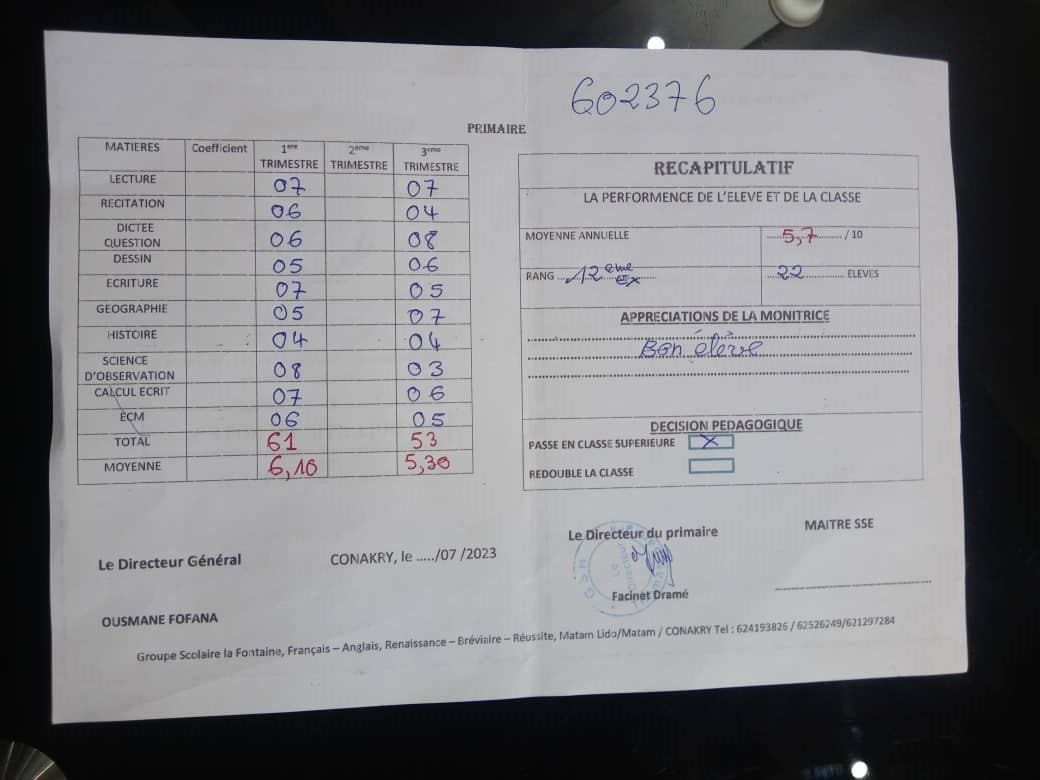 602376
PRIMAIRE
MATIERES Coefficient 1ere TRIMESTRE 2eme TRIMESTRE 3eme TRIMESTRE
LECTURE 07 07
RECITATION 06 04
DICTEE QUESTION 06 08
DESSIN 05 06
ECRITURE 07 05
GEOGRAPHIE 05 07
HISTOIRE 04 04
SCIENCE D'OBSERVATION 08 03
CALCUL ECRIT 07 06
ECM 06 05
TOTAL 61 53
MOYENNE 6,10 5,30
RECAPITULATIF
LA PERFORMENCE DE L'ELEVE ET DE LA CLASSE
MOYENNE ANNUELLE 5,7 / 10
RANG 12eme Ex 22 ELEVES
APPRECIATIONS DE LA MONITRICE
Bon élève
DECISION PEDAGOGIQUE
PASSE EN CLASSE SUPERIEURE X
REDOUBLE LA CLASSE
Le Directeur Général
CONAKRY, le ...../07 /2023
Le Directeur du primaire
MAITRE SSE
Facinet Dramé
OUSMANE FOFANA
Groupe Scolaire la Fontaine, Français – Anglais, Renaissance – Bréviaire – Réussite, Matam Lido/Matam / CONAKRY Tel : 624193826 / 62526249/621297284